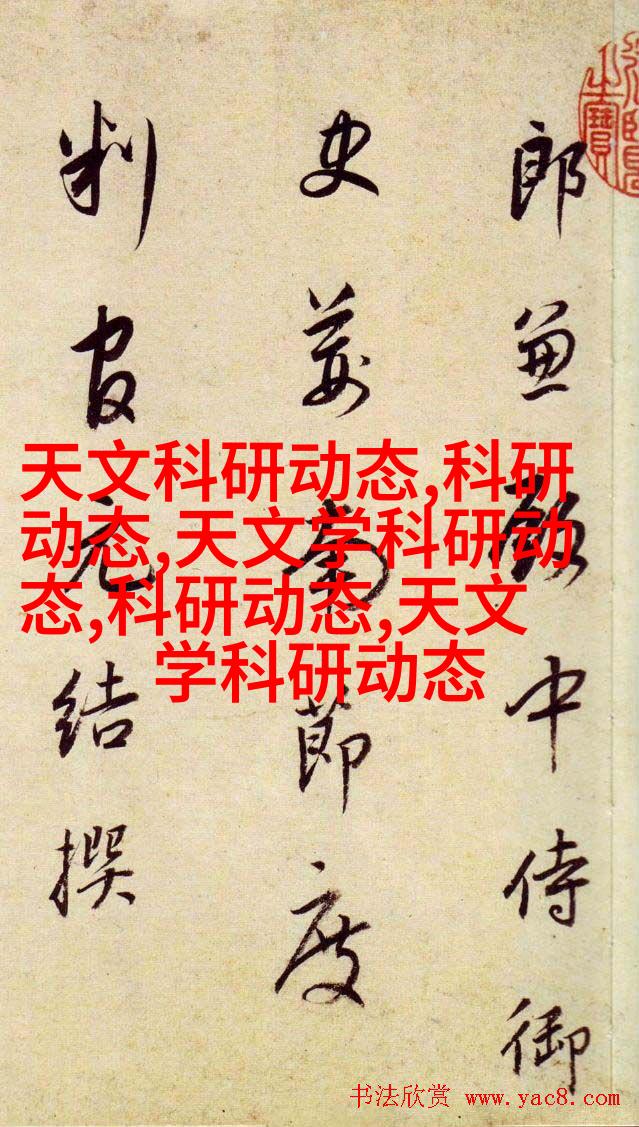 郎兼殿中侍御
史荊南節度
判官元結撰
天文科研动态,科研
动态,天文学科研动
态,科研动态,天文
学科研动态
书法欣赏 www.yac8.com